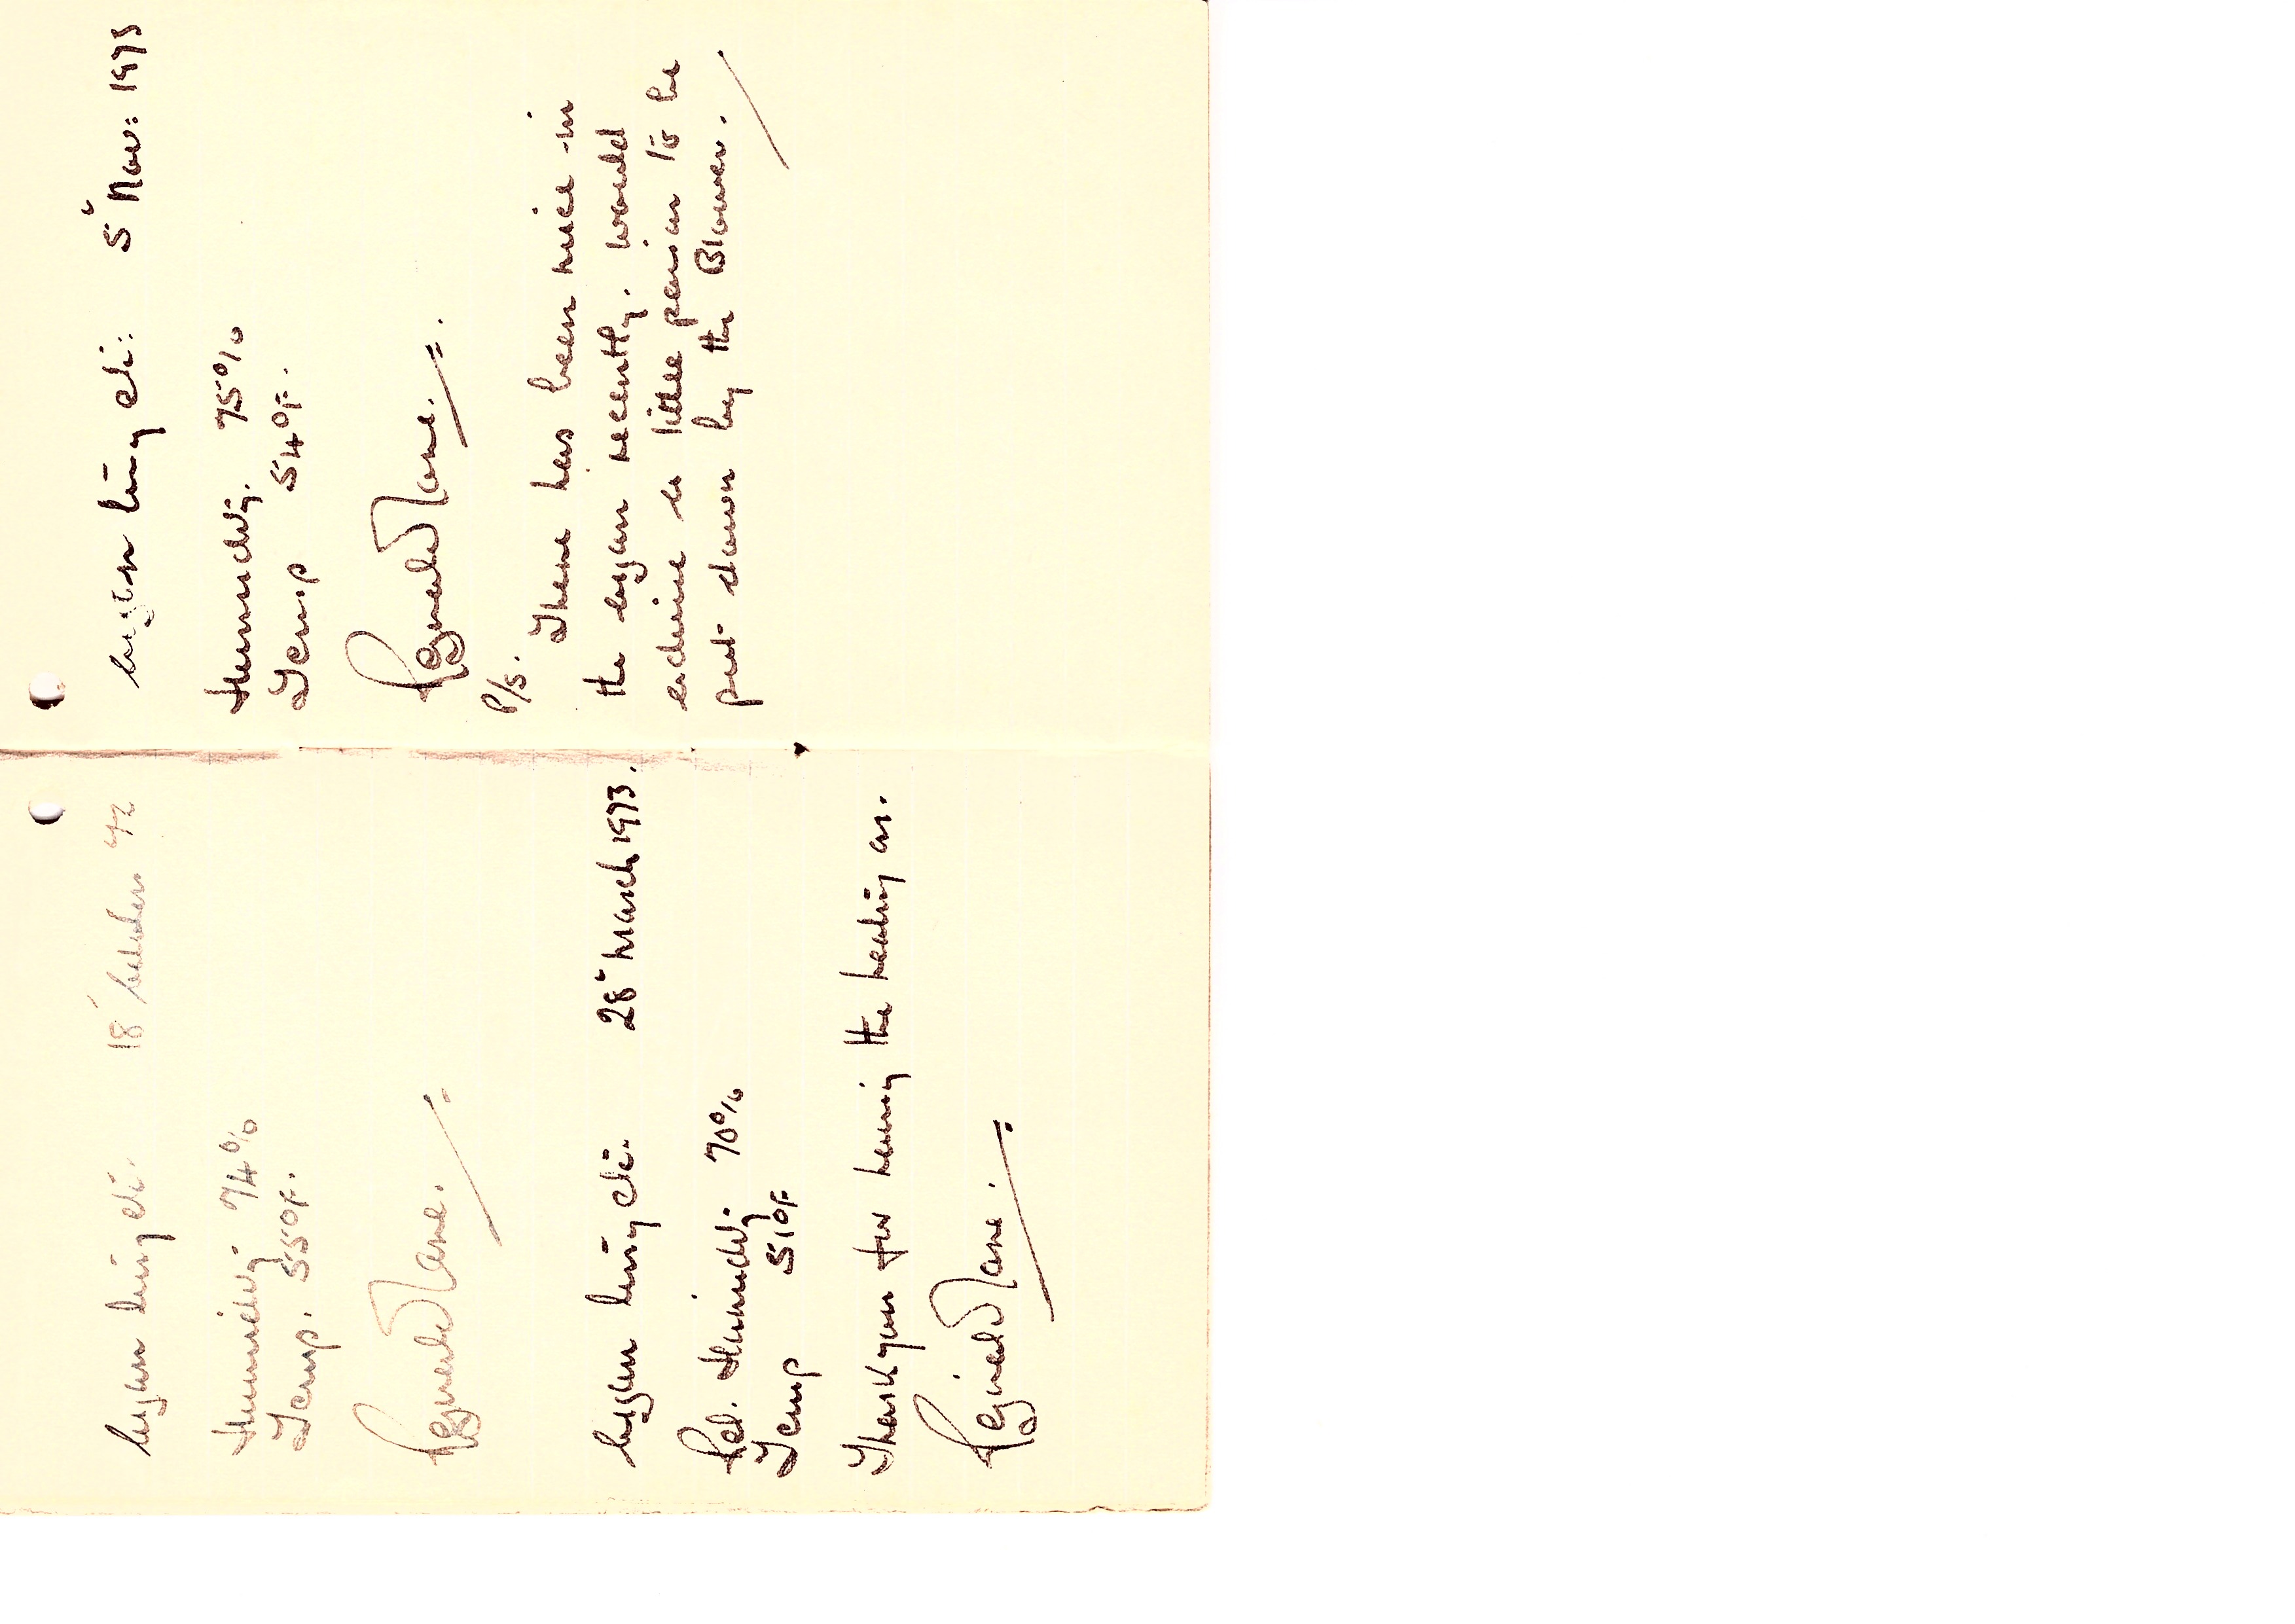 Organ tuning etc. 18' October 72
Humidity 74%
Temp. 55°F.
Reginald Lane.
Organ tuning etc. 28' March 1973.
Rel. Humidity 70%
Temp 51°F
Thankyou for having the heating on.
Reginald Lane.
Organ tuning etc: 5' Nov: 1973
Humidity. 75%
Temp 54°F.
Reginald Lane.
P/S.
There has been mice in
the organ recently. would
advise a little poison to be
put down by the Blower.